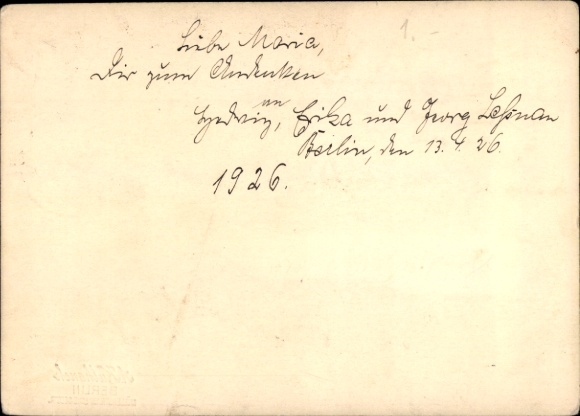 1.-
Liebe Maria,
Dir zum Andenken
an
Hedwig, Erika und Georg Leßnau
Berlin, den 13.4.26.
1926.
BERLIN